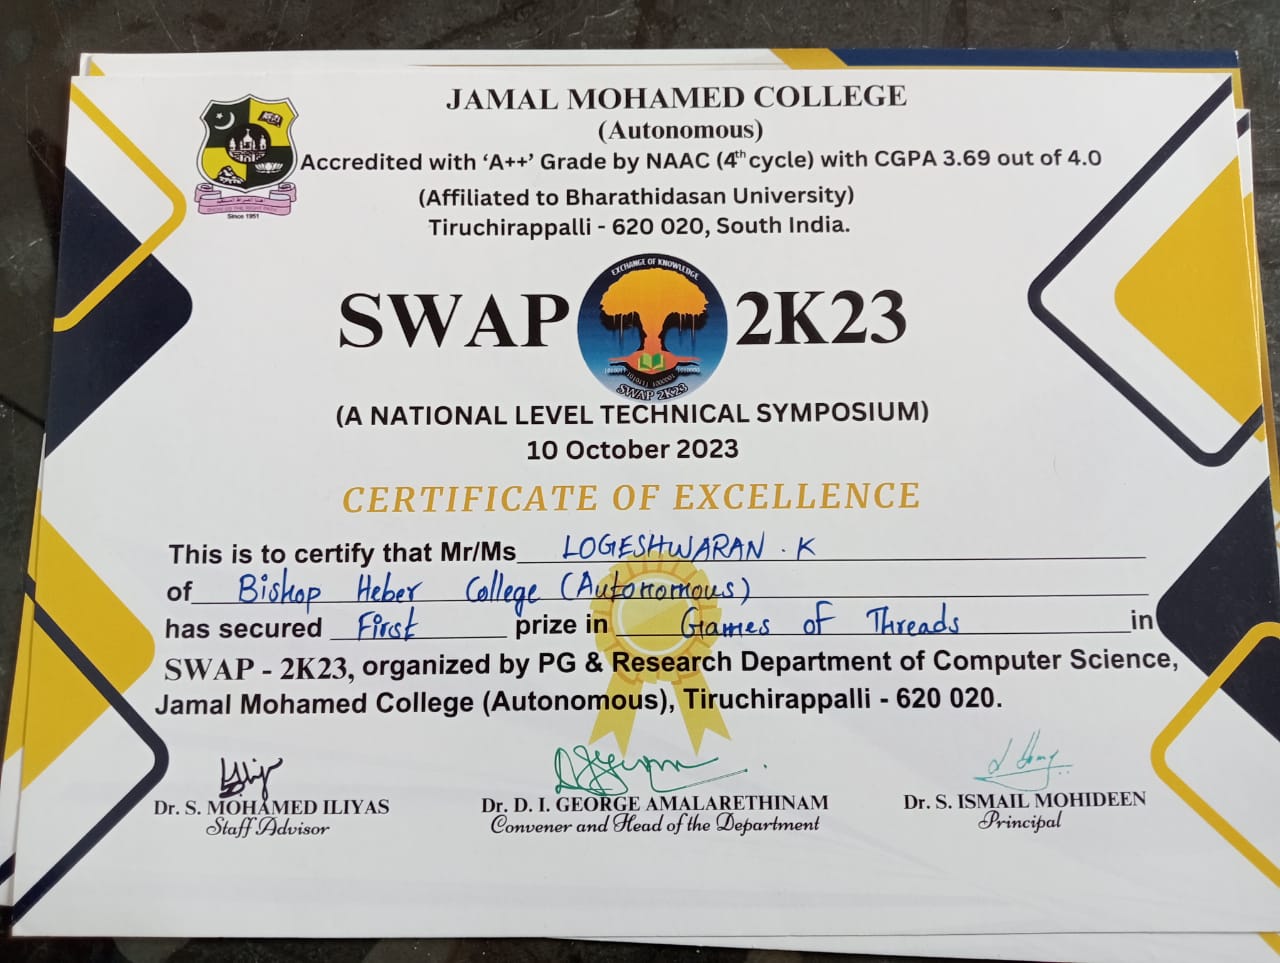 JAMAL MOHAMED COLLEGE
(Autonomous)
Accredited with ‘A++’ Grade by NAAC (4th cycle) with CGPA 3.69 out of 4.0
(Affiliated to Bharathidasan University)
Tiruchirappalli - 620 020, South India.
Since 1951
EXCHANGE OF KNOWLEDGE
SWAP 2K23
SWAP 2K23
(A NATIONAL LEVEL TECHNICAL SYMPOSIUM)
10 October 2023
CERTIFICATE OF EXCELLENCE
This is to certify that Mr/Ms LOGESHWARAN . K
of Bishop Heber College (Autonomous)
has secured First prize in Games of Threads in
SWAP - 2K23, organized by PG & Research Department of Computer Science,
Jamal Mohamed College (Autonomous), Tiruchirappalli - 620 020.
Dr. S. MOHAMED ILIYAS
Staff Advisor
Dr. D. I. GEORGE AMALARETHINAM
Convener and Head of the Department
Dr. S. ISMAIL MOHIDEEN
Principal